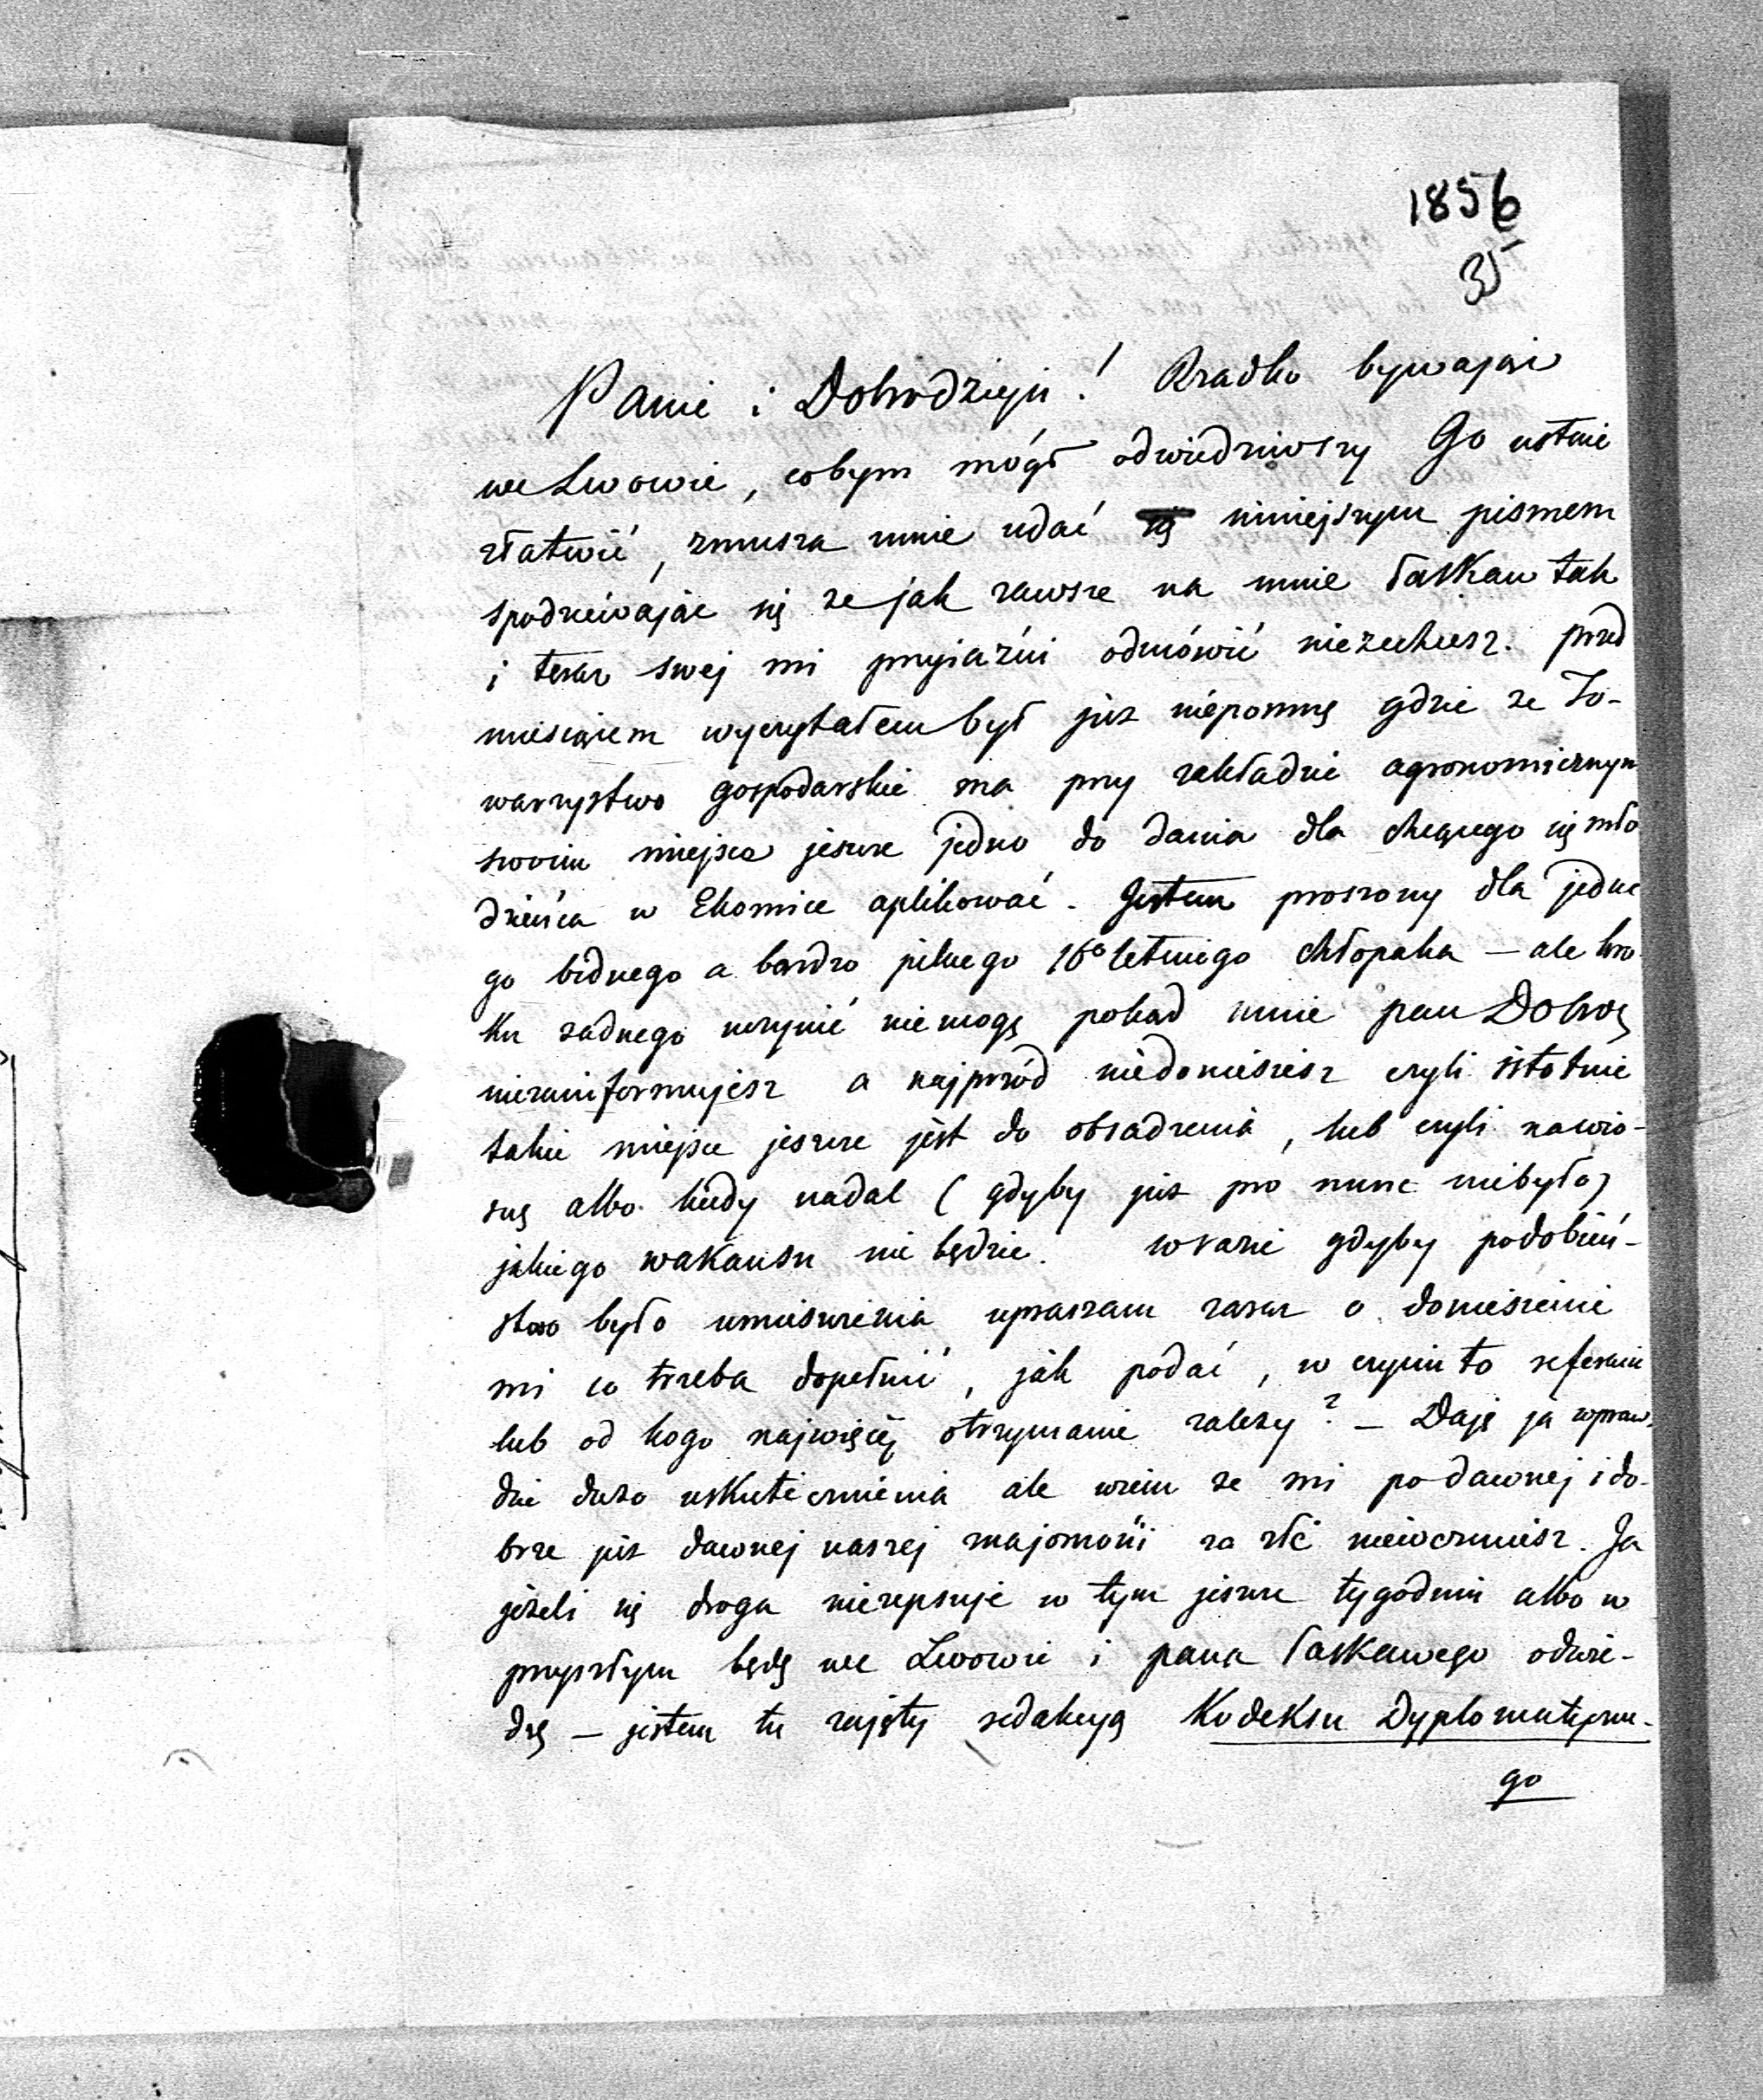 1856
35
Panie i Dobrodzieju! Rzadko bywając
we Lwowie, cobym mógł odwiedziwszy Go ustnie
złatwić, zmusza mnie udać się niniejszym pismem
spodziewając się że jak zawsze na mnie łaskaw tak
i teraz swej mi przyjaźni odmówić niezechcesz. przed
miesiącem wyczytałem był już niepomnę gdzie że To-
warzystwo gospodarskie ma przy zakładzie agronomicznym
swoim miejsce jeszcze jedno do dania dla chcącego się mło
dzieńca w Ekomice aplikować. Jestem proszony dla jedne
go biednego a bardzo pilnego 16o letniego chłopaka — ale kro-
ku żadnego uczynić niemogę pokąd mnie pan Dobro
niezainformujesz a najprzód niedoniesiesz czyli istotnie
takie miejsce jeszcze jest do obsadzenia, lub czyli na wio-
snę albo kiedy nadal (gdyby już pro nunc niebyło)
jakiego wakansu nie będzie. w razie gdyby podobień-
stwo było umieszczenia upraszam zaraz o doniesienie
mi co trzeba dopełnić, jak podać, w czyim to referacie
lub od kogo najwięcej otrzymanie zależy? — Daję ja wpraw-
dzie dużo uskutecznienia ale wiem że mi po dawnej i do-
brze już dawnej naszej znajomości za złe nieweźmiesz. Ja
jeżeli się droga niezepsuje w tym jeszcze tygodniu albo w
przyszłym będę we Lwowie i pana łaskawego odwie-
dzę — jestem tu zajęty redakcyą Kodeksu Dyplomatyczne-
go